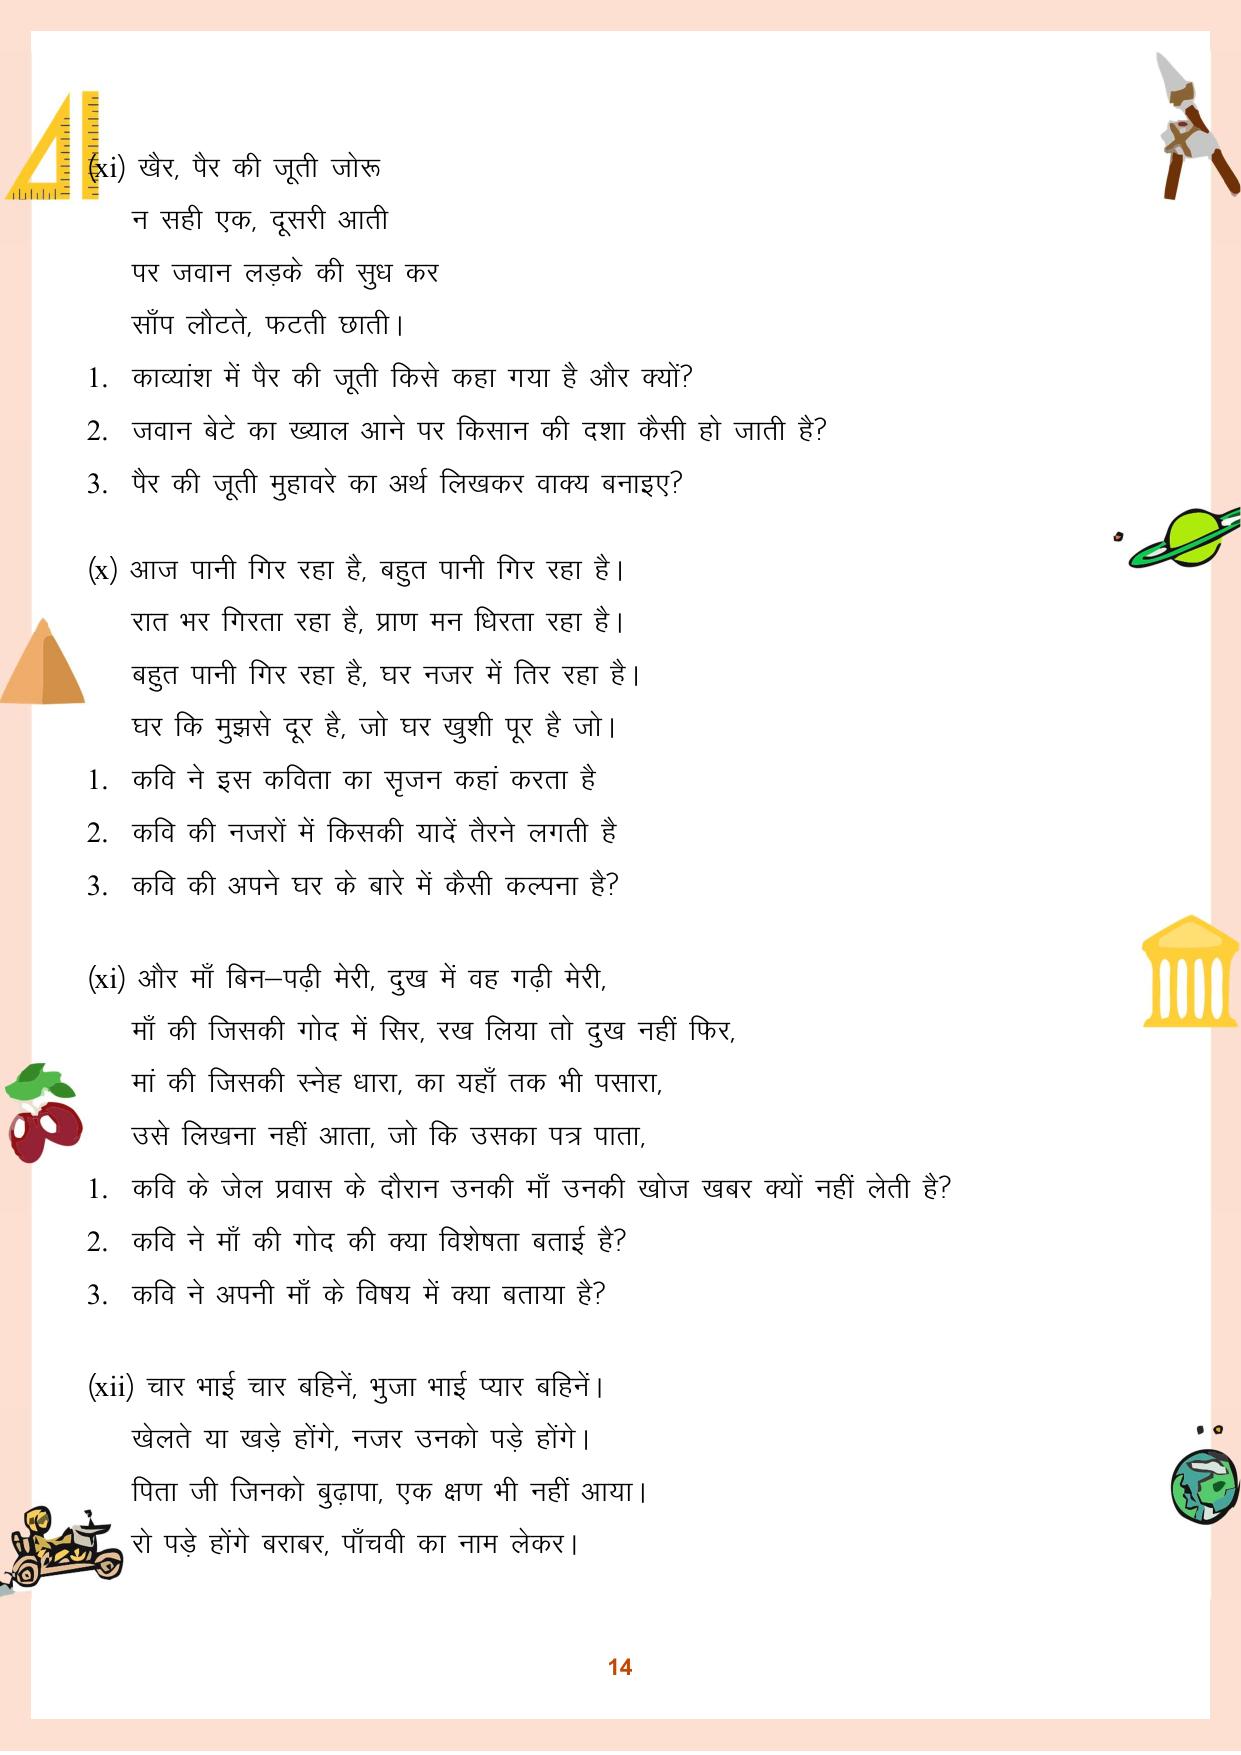 (xi) खैर, पैर की जूती जोरू
न सही एक, दूसरी आती
पर जवान लड़के की सुध कर
साँप लौटते, फटती छाती।
1. काव्यांश में पैर की जूती किसे कहा गया है और क्यों?
2. जवान बेटे का ख्याल आने पर किसान की दशा कैसी हो जाती है?
3. पैर की जूती मुहावरे का अर्थ लिखकर वाक्य बनाइए?
(x) आज पानी गिर रहा है, बहुत पानी गिर रहा है।
रात भर गिरता रहा है, प्राण मन धिरता रहा है।
बहुत पानी गिर रहा है, घर नजर में तिर रहा है।
घर कि मुझसे दूर है, जो घर खुशी पूर है जो।
1. कवि ने इस कविता का सृजन कहां करता है
2. कवि की नजरों में किसकी यादें तैरने लगती है
3. कवि की अपने घर के बारे में कैसी कल्पना है?
(xi) और माँ बिन–पढ़ी मेरी, दुख में वह गढ़ी मेरी,
माँ की जिसकी गोद में सिर, रख लिया तो दुख नहीं फिर,
मां की जिसकी स्नेह धारा, का यहाँ तक भी पसारा,
उसे लिखना नहीं आता, जो कि उसका पत्र पाता,
1. कवि के जेल प्रवास के दौरान उनकी माँ उनकी खोज खबर क्यों नहीं लेती है?
2. कवि ने माँ की गोद की क्या विशेषता बताई है?
3. कवि ने अपनी माँ के विषय में क्या बताया है?
(xii) चार भाई चार बहिनें, भुजा भाई प्यार बहिनें।
खेलते या खड़े होंगे, नजर उनको पड़े होंगे।
पिता जी जिनको बुढ़ापा, एक क्षण भी नहीं आया।
रो पड़े होंगे बराबर, पाँचवी का नाम लेकर।
14